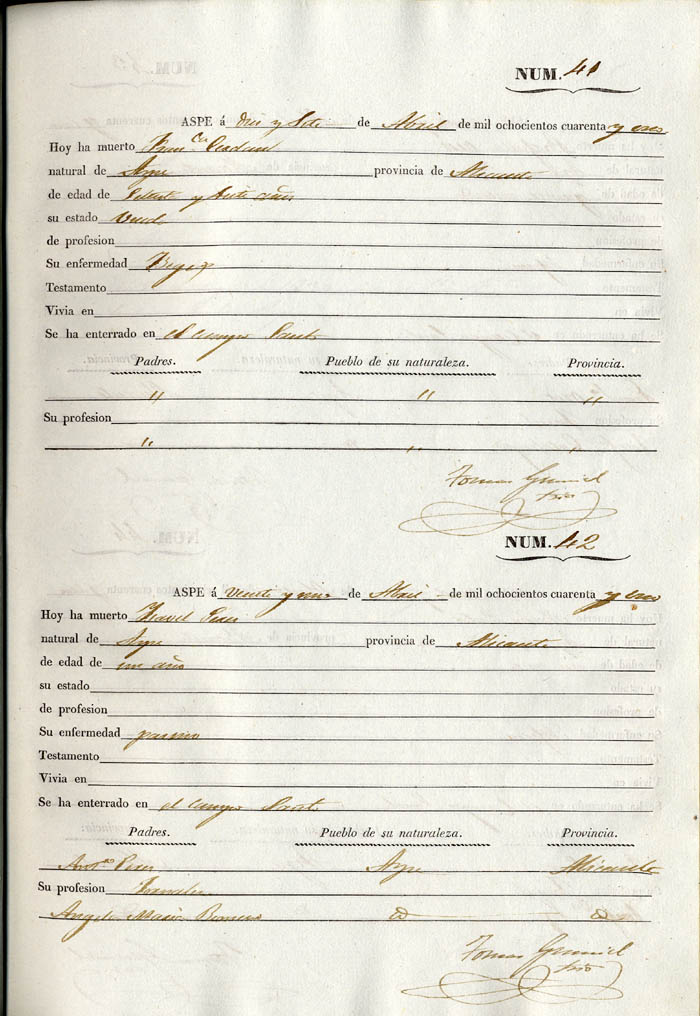 NUM. 41
ASPE á diez y siete de Abril de mil ochocientos cuarenta y uno
Hoy ha muerto Fran.ca
natural de Aspe provincia de Alicante
de edad de setenta y siete años
su estado
de profesion
Su enfermedad
Testamento
Vivia en
Se ha enterrado en el campo Santo
Padres. Pueblo de su naturaleza. Provincia.
" " "
Su profesion
" " "
Tomas
NUM. 42
ASPE á veinte y uno de Abril de mil ochocientos cuarenta y uno
Hoy ha muerto Peres
natural de Aspe provincia de Alicante
de edad de un año
su estado
de profesion
Su enfermedad pasmo
Testamento
Vivia en
Se ha enterrado en el campo Santo
Padres. Pueblo de su naturaleza. Provincia.
Ant.o Peres Aspe Alicante
Su profesion
Angela Maria Romero
Tomas